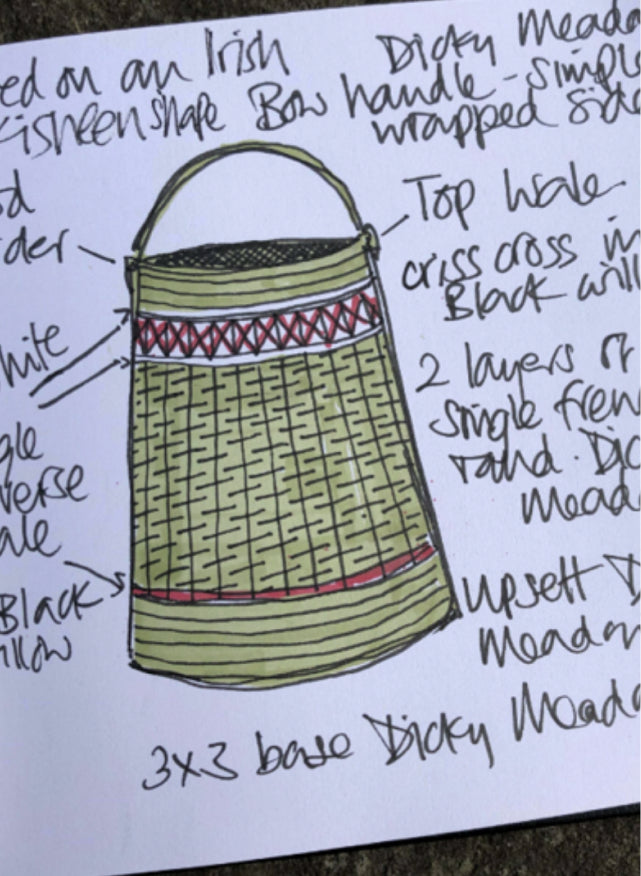 ed on an Irish
Kisheen shape
Dicky Meado
Bow handle - simple
wrapped side
d
der
Top Wale
criss cross in
Black will
hite
2 layers of
single fren
rand. Dic
Mead
gle
verse
ale
Black
illow
Upsett D
Meadow
3x3 base Dicky Meado